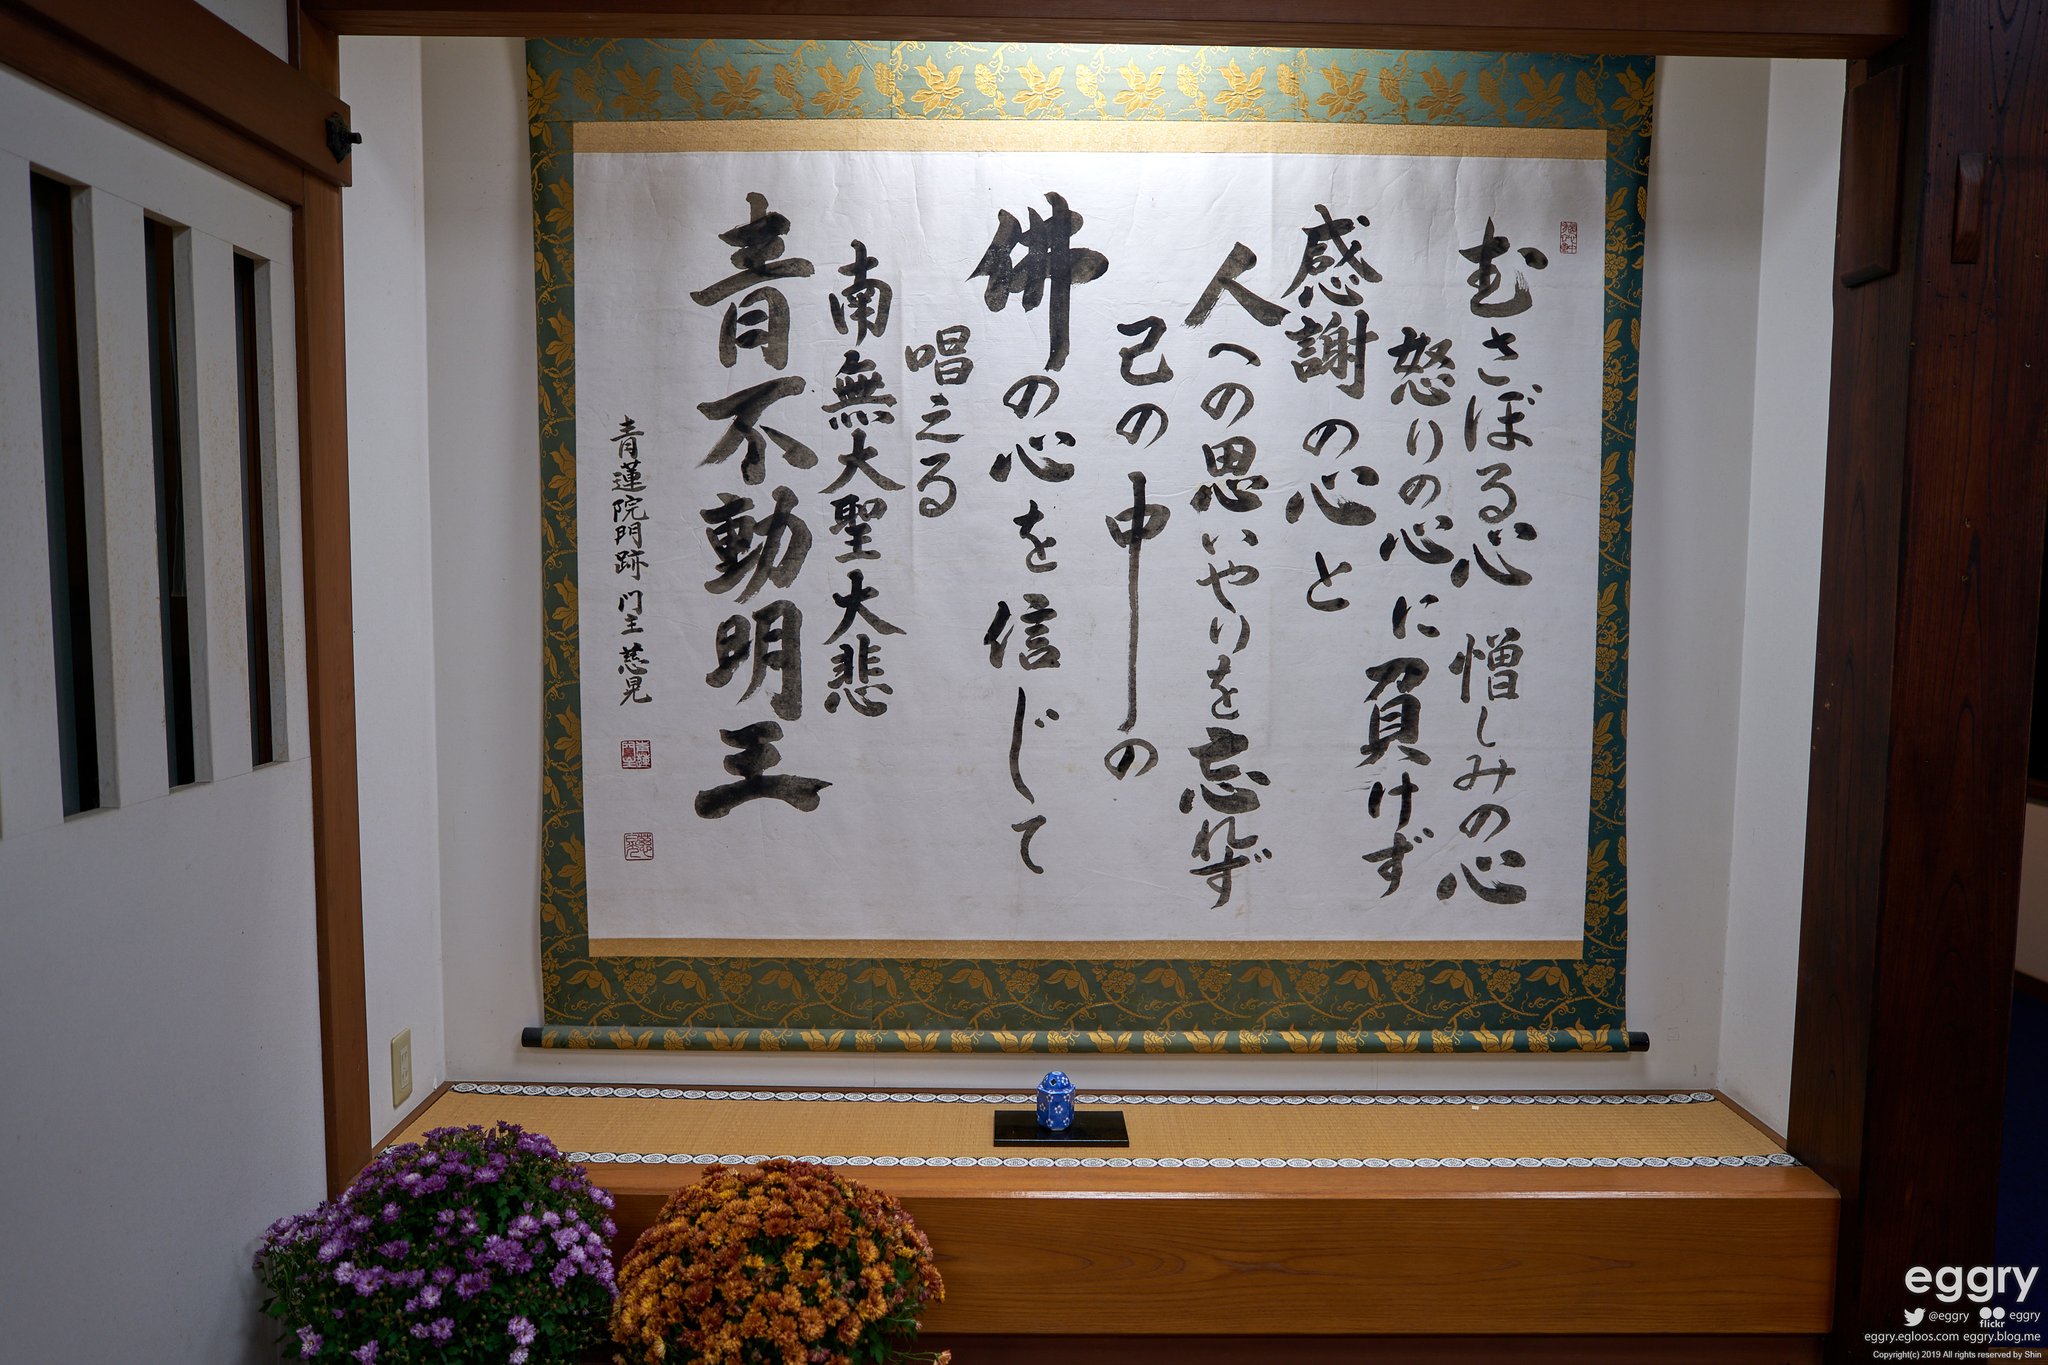 むさぼる心 憎しみの心
怒りの心に負けず
感謝の心と
人への思いやりを忘れず
己の中の
佛の心を信じて
唱える
南無大聖大悲
青不動明王
青蓮院門跡 门主 慈晃
eggry
@eggry flickr eggry
eggry.egloos.com eggry.blog.me
Copyright(c) 2019 All rights reserved by Shin